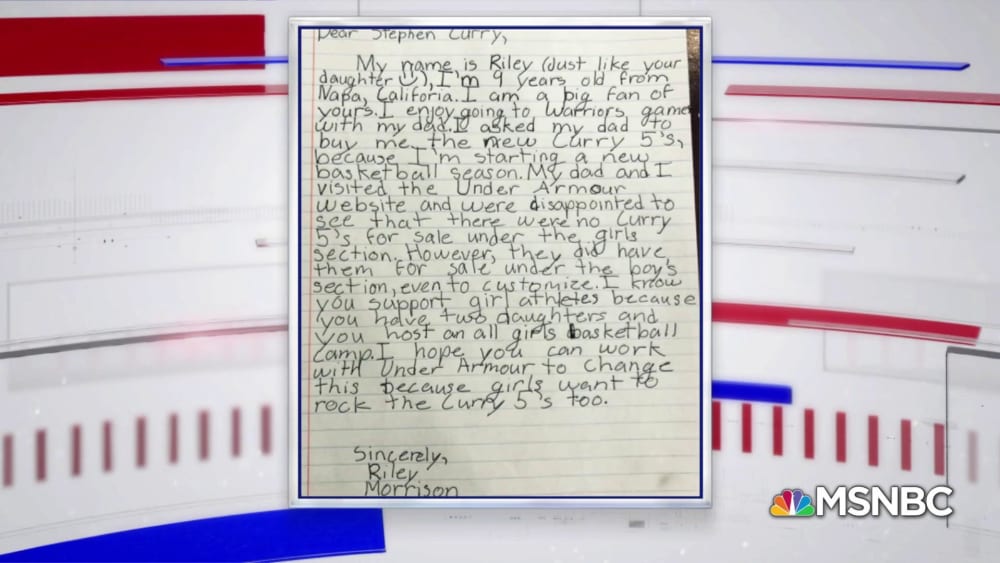 Dear Stephen Curry,
My name is Riley (Just like your
daughter), I'm 9 years old from
Napa, Califoria. I am a big fan of
yours. I enjoy going to Warriors game
with my dad. I asked my dad to
buy me the new Curry 5's,
because I'm starting a new
basketball season. My dad and I
visited the Under Armour
website and were disappointed to
see that there were no Curry
5's for sale under the girls
section. However, they did have
them for sale under the boy's
section, even to customize. I know
you support girl athletes because
you have two daughters and
you host an all girls basketball
camp. I hope you can work
with Under Armour to change
this because girls want to
rock the Curry 5's too.
Sincerely,
Riley
Morrison
MSNBC